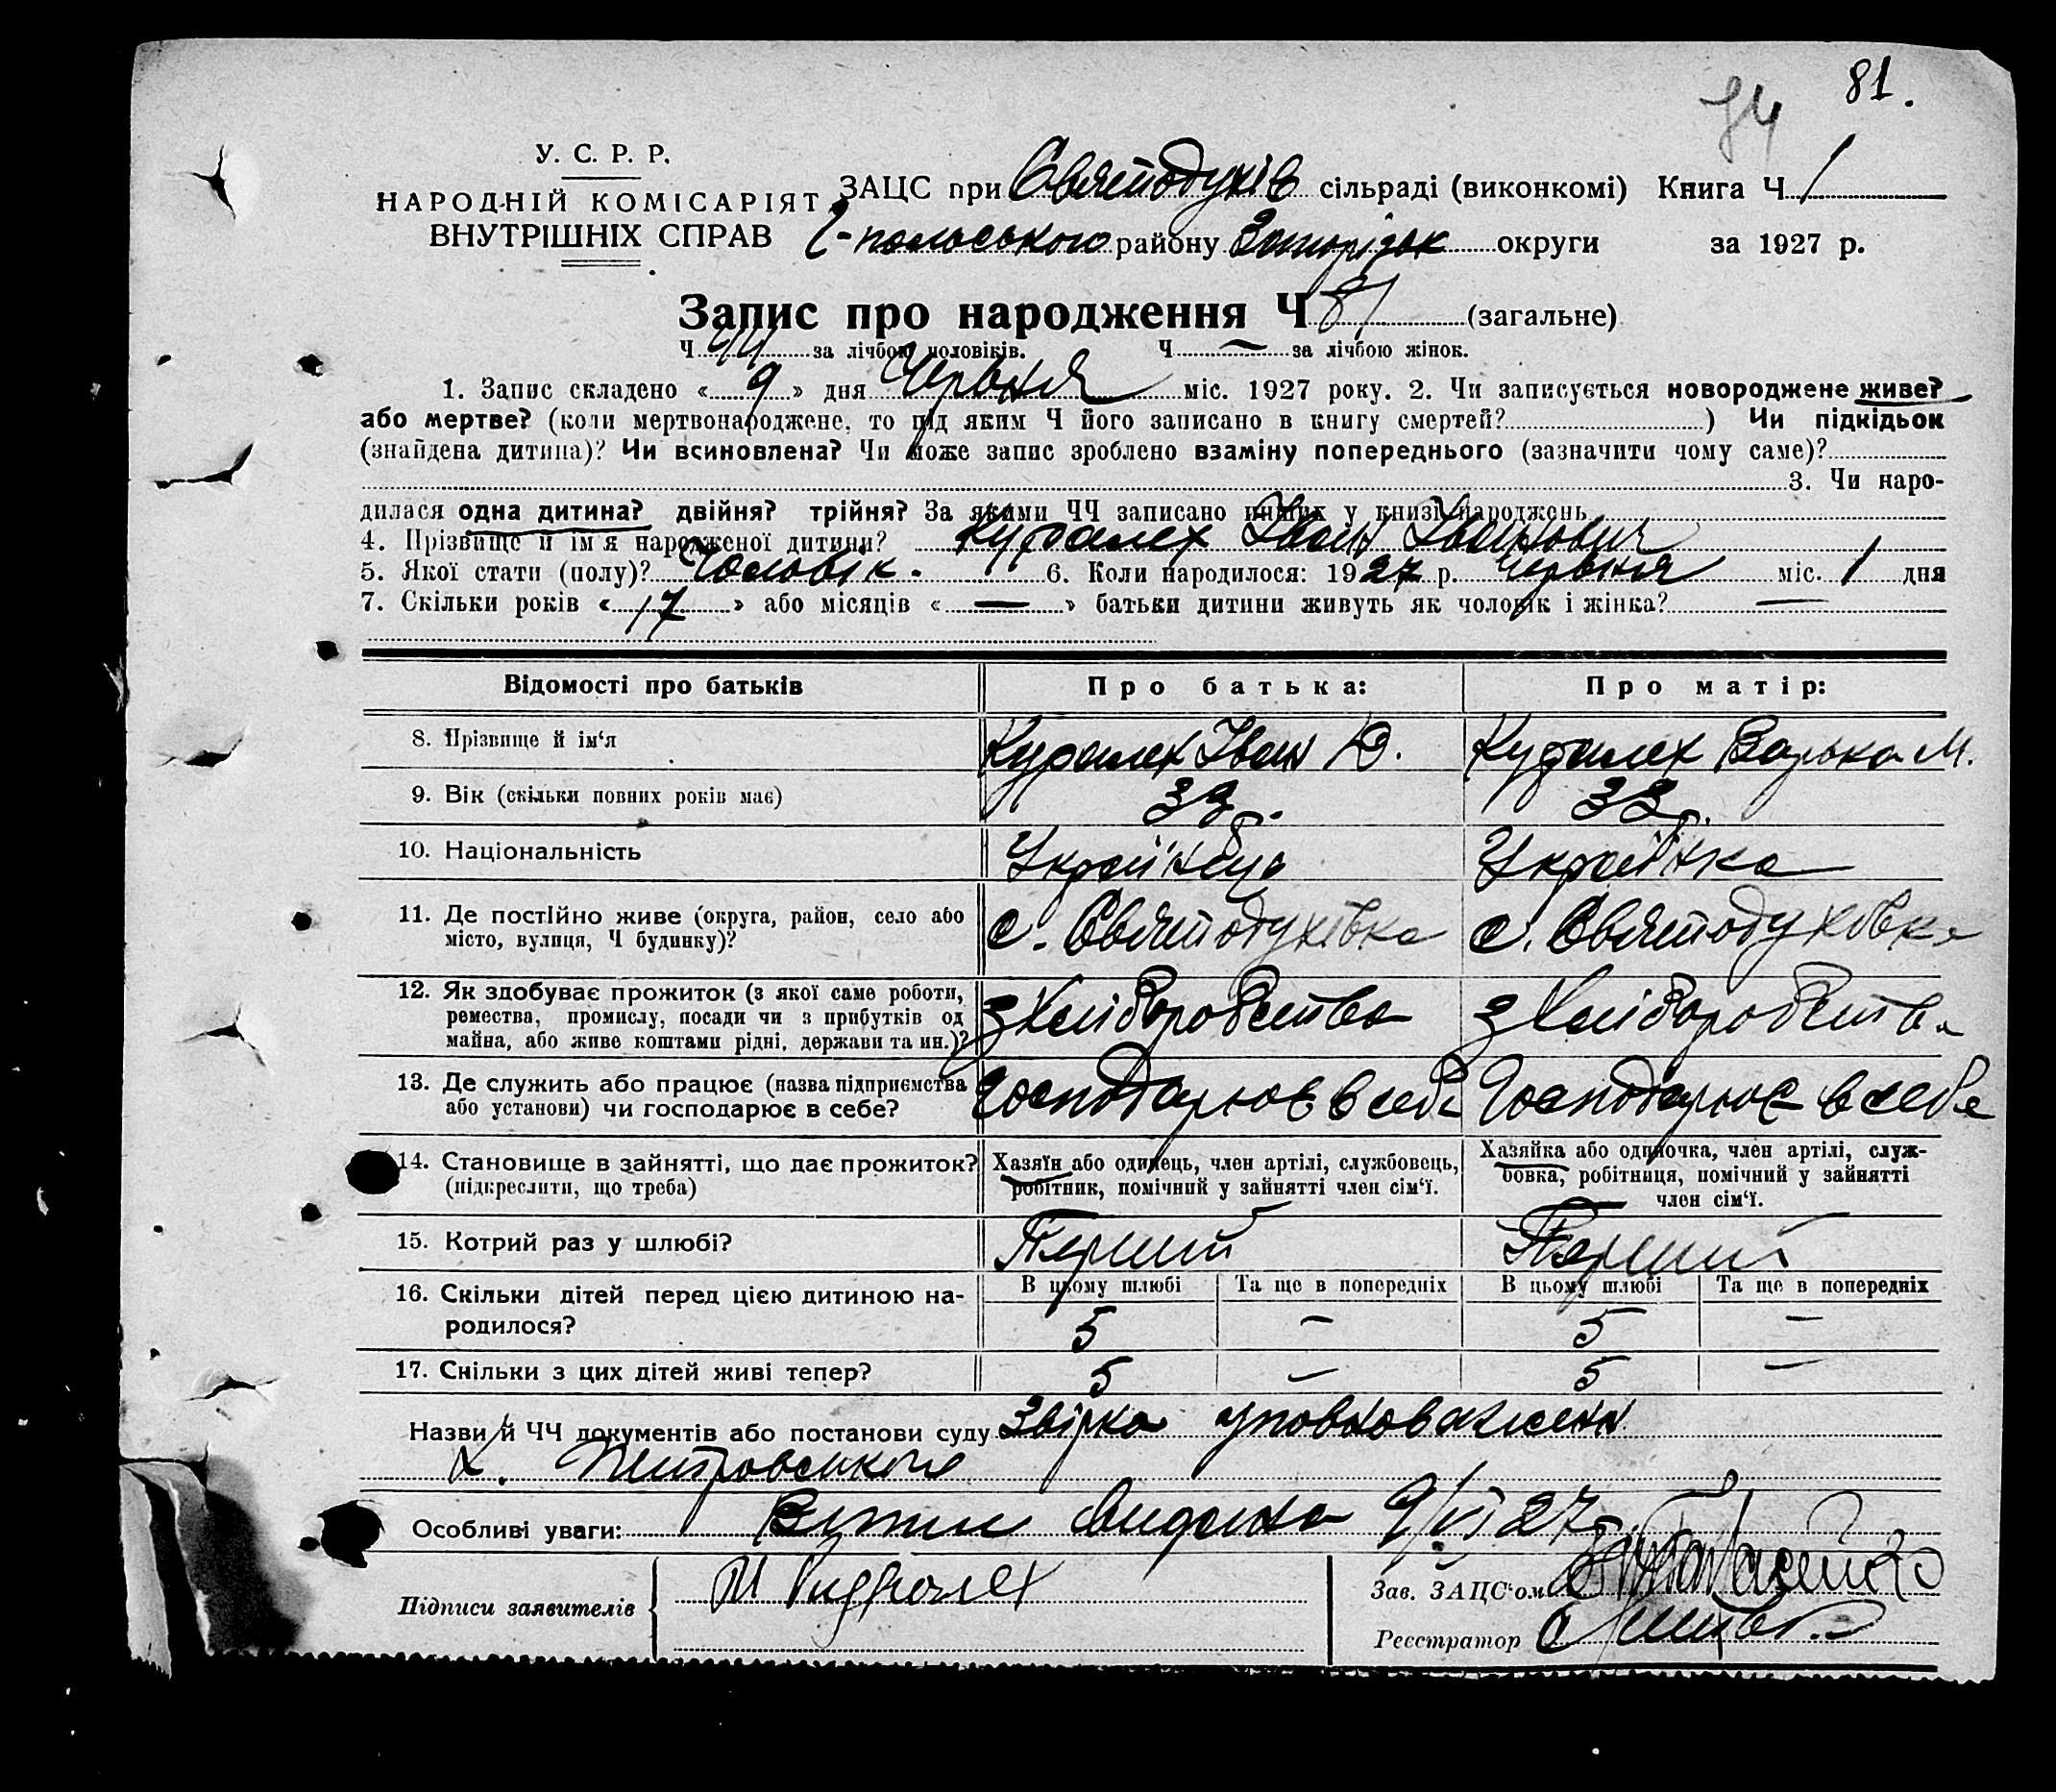 81.
74
У. С. Р. Р.
НАРОДНІЙ КОМІСАРІЯТ
ВНУТРІШНІХ СПРАВ
ЗАЦС при Святодухів сільраді (виконкомі) Книга Ч 1
районy Запорізьк округи за 1927 р.
Запис про народження Ч 81 (загальне)
Ч 44 за лічбою чоловіків. Ч — за лічбою жінок.
1. Запис складено « 9 » дня Червня міс. 1927 року. 2. Чи записується новороджене живе?
або мертве? (коли мертвонароджене, то під яким Ч його записано в книгу смертей? ) Чи підкідьок
(знайдена дитина)? Чи всиновлена? Чи може запис зроблено взаміну попереднього (зазначити чому саме)?
3. Чи наро-
дилася одна дитина? двійня? трійня? За якими ЧЧ записано инших у книзі народжень
4. Прізвище й ім'я народженої дитини? Іван Іванович
5. Якої стати (полу)? Чоловік. 6. Коли народилося: 1927 р. Червня міс. 1 дня
7. Скільки років « 17 » або місяців « — » батьки дитини живуть як чоловік і жінка? —
Відомості про батьків Про батька: Про матір:
8. Прізвище й ім'я Іван Ю. М.
9. Вік (скільки повних років має) 33.
10. Національність Українець Українка
11. Де постІйно живе (округа, район, село або
місто, вулиця, Ч будинку)? с. Святодухівка с. Святодухівка
12. Як здобуває прожиток (з якої саме роботи,
ремества, промислу, посади чи з прибутків од
майна, або живе коштами рідні, держави та ин.)? з Хліборобства з Хліборобства
13. Де служить або працює (назва підприємства
або установи) чи господарює в себе? Господарює в себе Господарює в себе
14. Становище в зайнятті, що дає прожиток?
(підкреслити, що треба)
Хазяїн або одинець, член артілі, службовець,
робітник, помічний у зайнятті член сім'ї.
Хазяйка або одиночка, член артілі, служ-
бовка, робітниця, помічний у зайнятті
член сім'ї.
15. Котрий раз у шлюбі? Перший Перший
16. Скільки дітей перед цією дитиною на-
родилося?
В цьому шлюбі Та ще в попередніх В цьому шлюбі Та ще в попередніх
5 — 5 —
17. Скільки з цих дітей живі тепер? 5 — 5 —
Назви й ЧЧ документів або постанови суду Звірка уповноважен
х. Петровського
Особливі уваги: видана 9/VI 27
Підписи заявителів
Зав. ЗАЦС'ом
Реєстратор